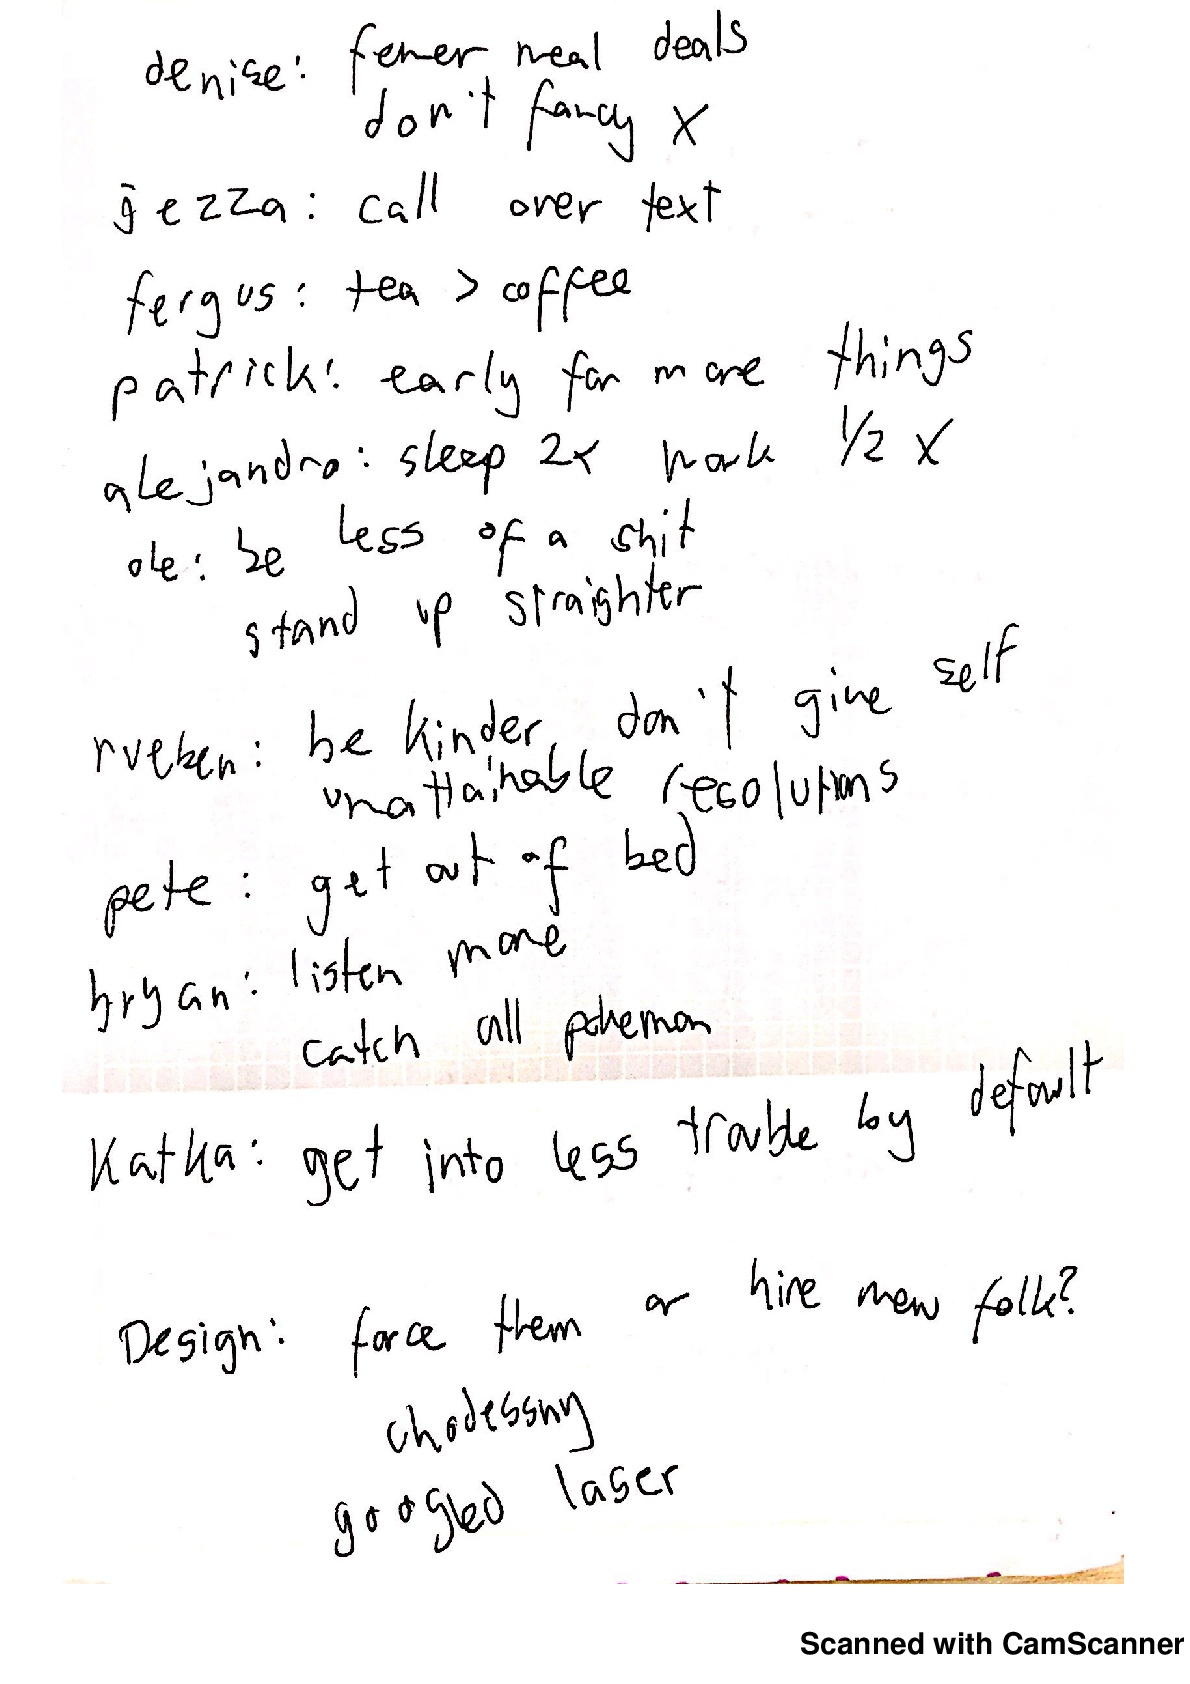 denise: fewer meal deals
don't fancy X
jezza: call over text
fergus: tea > coffee
patrick: early for more things
alejandro: sleep 2x work 1/2 X
ole: be less of a shit
stand up straighter
rueben: be kinder, don't give self
unattainable resolutions
pete: get out of bed
bryan: listen more
catch all pokemon
Katka: get into less trouble by default
Design: force them or hire new folk?
googled laser
Scanned with CamScanner